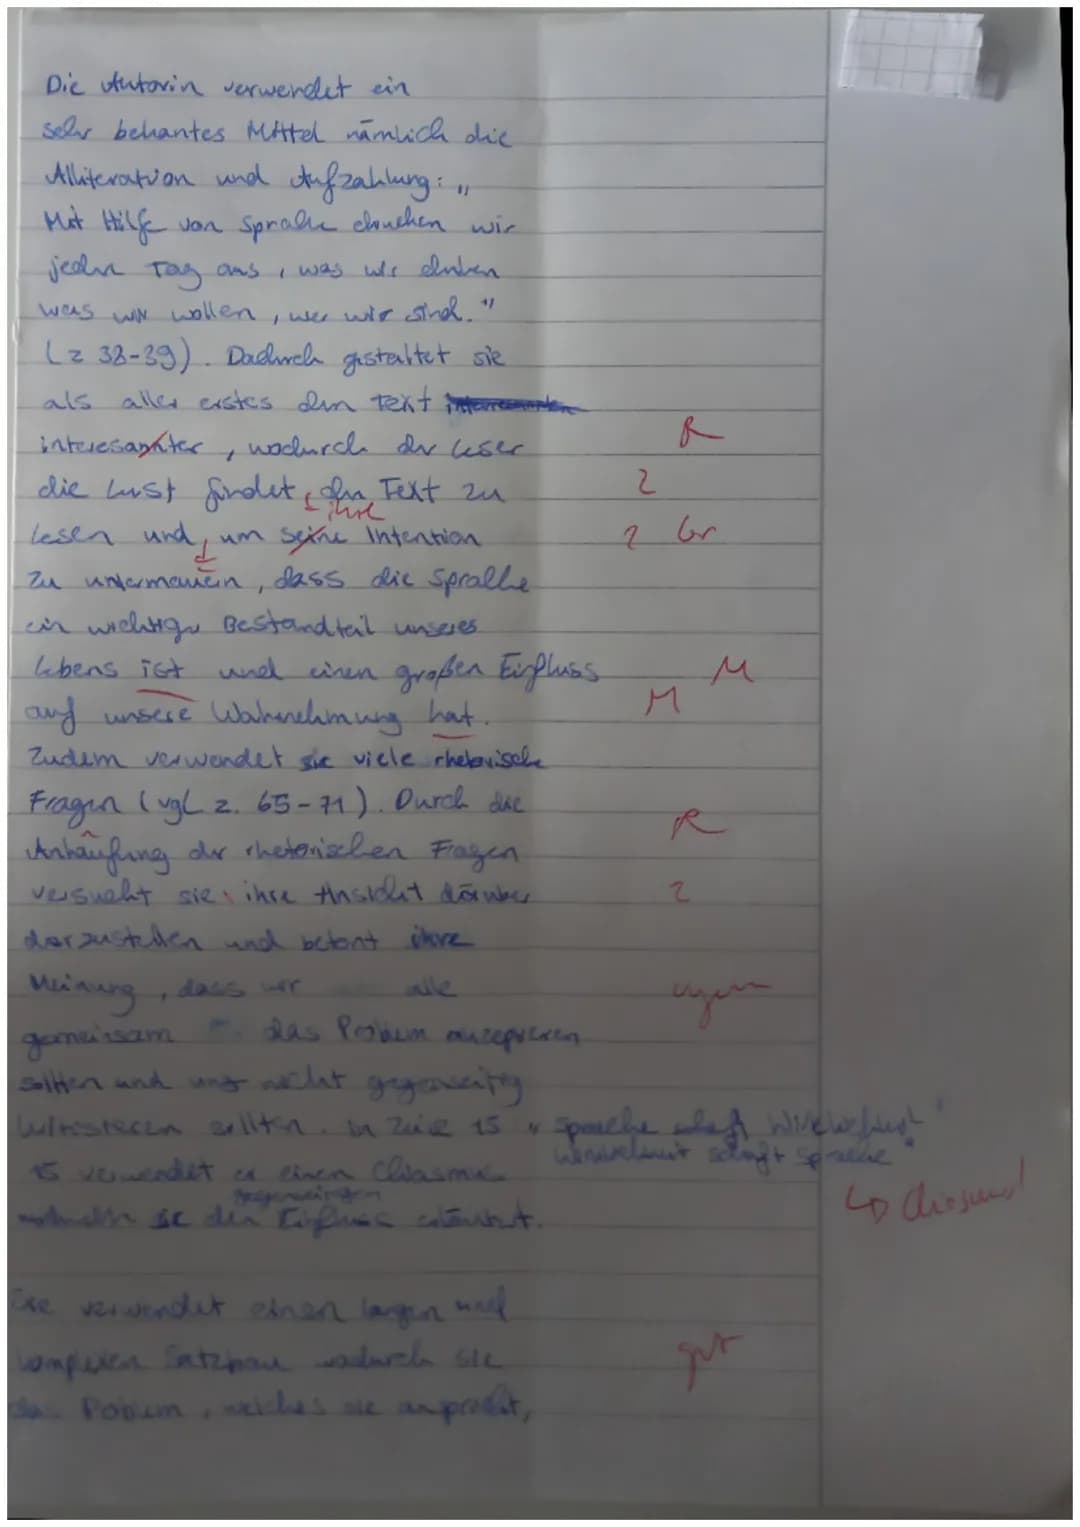 Die Autorin verwendet ein
sehr bekantes Mittel nämlich die
Alliteration und Aufzahlung: „
Mit Hilfe von Sprache drucken wir
jeden Tag aus, was wir denken
was wir wollen, wer wir sind."
(z 38-39). Dadurch gestaltet sie
als aller erstes den Text
interesannter, wodurch der Leser R
die Lust findet, den Text zu Z
ihre
lesen und, um seine Intention Z Gr
zu untermauern, dass die Sprache
ein wichtiger Bestandteil unseres
Lebens ist und einen großen Einfluss M
auf unsere Wahrnehmung hat. M
Zudem verwendet sie viele rhetorische
Fragen (vgl z. 65-71). Durch die
Anhäufung der rhetorischen Fragen R
versucht sie, ihre Ansicht darüber Z
darzustellen und betont ihre
Meinung, dass wir alle
gemeinsam das Problem akzeptieren
sollten und uns nicht gegenseitig
sollten. In Zeile 15 „Sprache schaft Wirklichkeit"
Wirklichkeit schaft Sprache"
15 verwendet er einen Chiasmus
↳ Chiasmus!
gegenseitigen
sie den Einfluss
Sie verwendet einen langen und
komplexen Satzbau wodurch sie gut
das Poblem, welches sie anspricht,